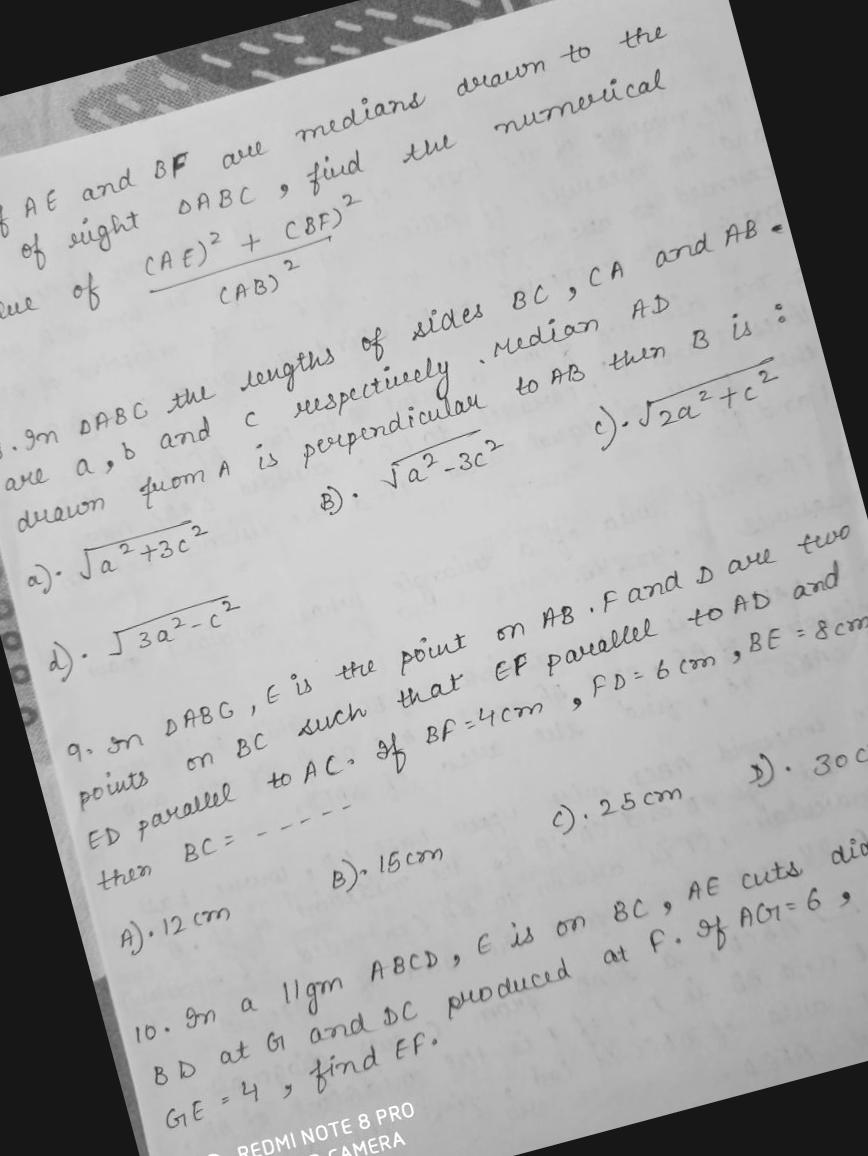 AE and BF are medians drawn to the
of right ΔABC, find the numerical
of (AE)² + (BF)²
(AB)²
. In ΔABC the lengths of sides BC, CA and AB
are a, b and c respectively. Median AD
drawn from A is perpendicular to AB then B is :
a). √a²+3c² B). √a²-3c² c). √2a²+c²
d). √3a²-c²
9. In ΔABC, E is the point on AB. F and D are two
points on BC such that EF parallel to AD and
ED parallel to AC. If BF=4cm, FD=6cm, BE=8cm
then BC = - - - - -
A). 12 cm B). 15 cm C). 25 cm D). 30
10. In a ||gm ABCD, E is on BC, AE cuts
BD at G and DC produced at F. If AG=6,
GE=4, find EF.
REDMI NOTE 8 PRO
CAMERA